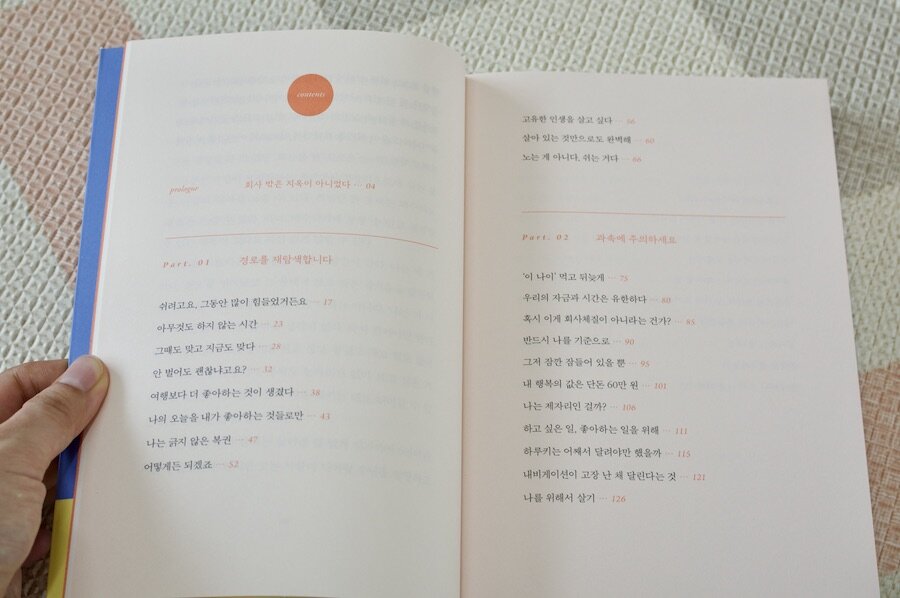 contents
prologue 회사 밖은 지옥이 아니었다 ··· 04
Part. 01 경로를 재탐색합니다
쉬려고요, 그동안 많이 힘들었거든요 ··· 17
아무것도 하지 않는 시간 ··· 23
그때도 맞고 지금도 맞다 ··· 28
안 벌어도 괜찮냐고요? ··· 32
여행보다 더 좋아하는 것이 생겼다 ··· 38
나의 오늘을 내가 좋아하는 것들로만 ··· 43
나는 긁지 않은 복권 ··· 47
어떻게든 되겠죠 ··· 52
고유한 인생을 살고 싶다 ··· 56
살아 있는 것만으로도 완벽해 ··· 60
노는 게 아니다, 쉬는 거다 ··· 66
Part. 02 과속에 주의하세요
'이 나이' 먹고 뒤늦게 ··· 75
우리의 자금과 시간은 유한하다 ··· 80
혹시 이게 회사체질이 아니라는 건가? ··· 85
반드시 나를 기준으로 ··· 90
그저 잠깐 잠들어 있을 뿐 ··· 95
내 행복의 값은 단돈 60만 원 ··· 101
나는 제자리인 걸까? ··· 106
하고 싶은 일, 좋아하는 일을 위해 ··· 111
하루키는 어째서 달려야만 했을까 ··· 115
내비게이션이 고장 난 채 달린다는 것 ··· 121
나를 위해서 살기 ··· 126